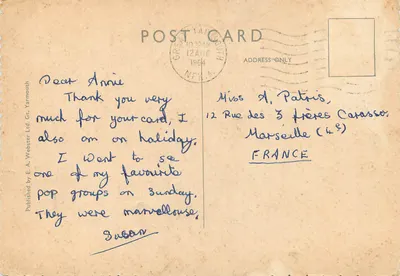 POST CARD
ADDRESS ONLY
GREAT YARMOUTH
12 AUG
1964
Dear Annie
Thank you very
much for your card, I
also am on haliday.
I went to see
one of my favourite
pop groups on Sunday.
They were marvellouse.
Susan
Miss A. Patris,
12 Rue des 3 frères Carasso,
Marseille (4e)
FRANCE
Published by E. A. Witham Ltd. Co. Yarmouth